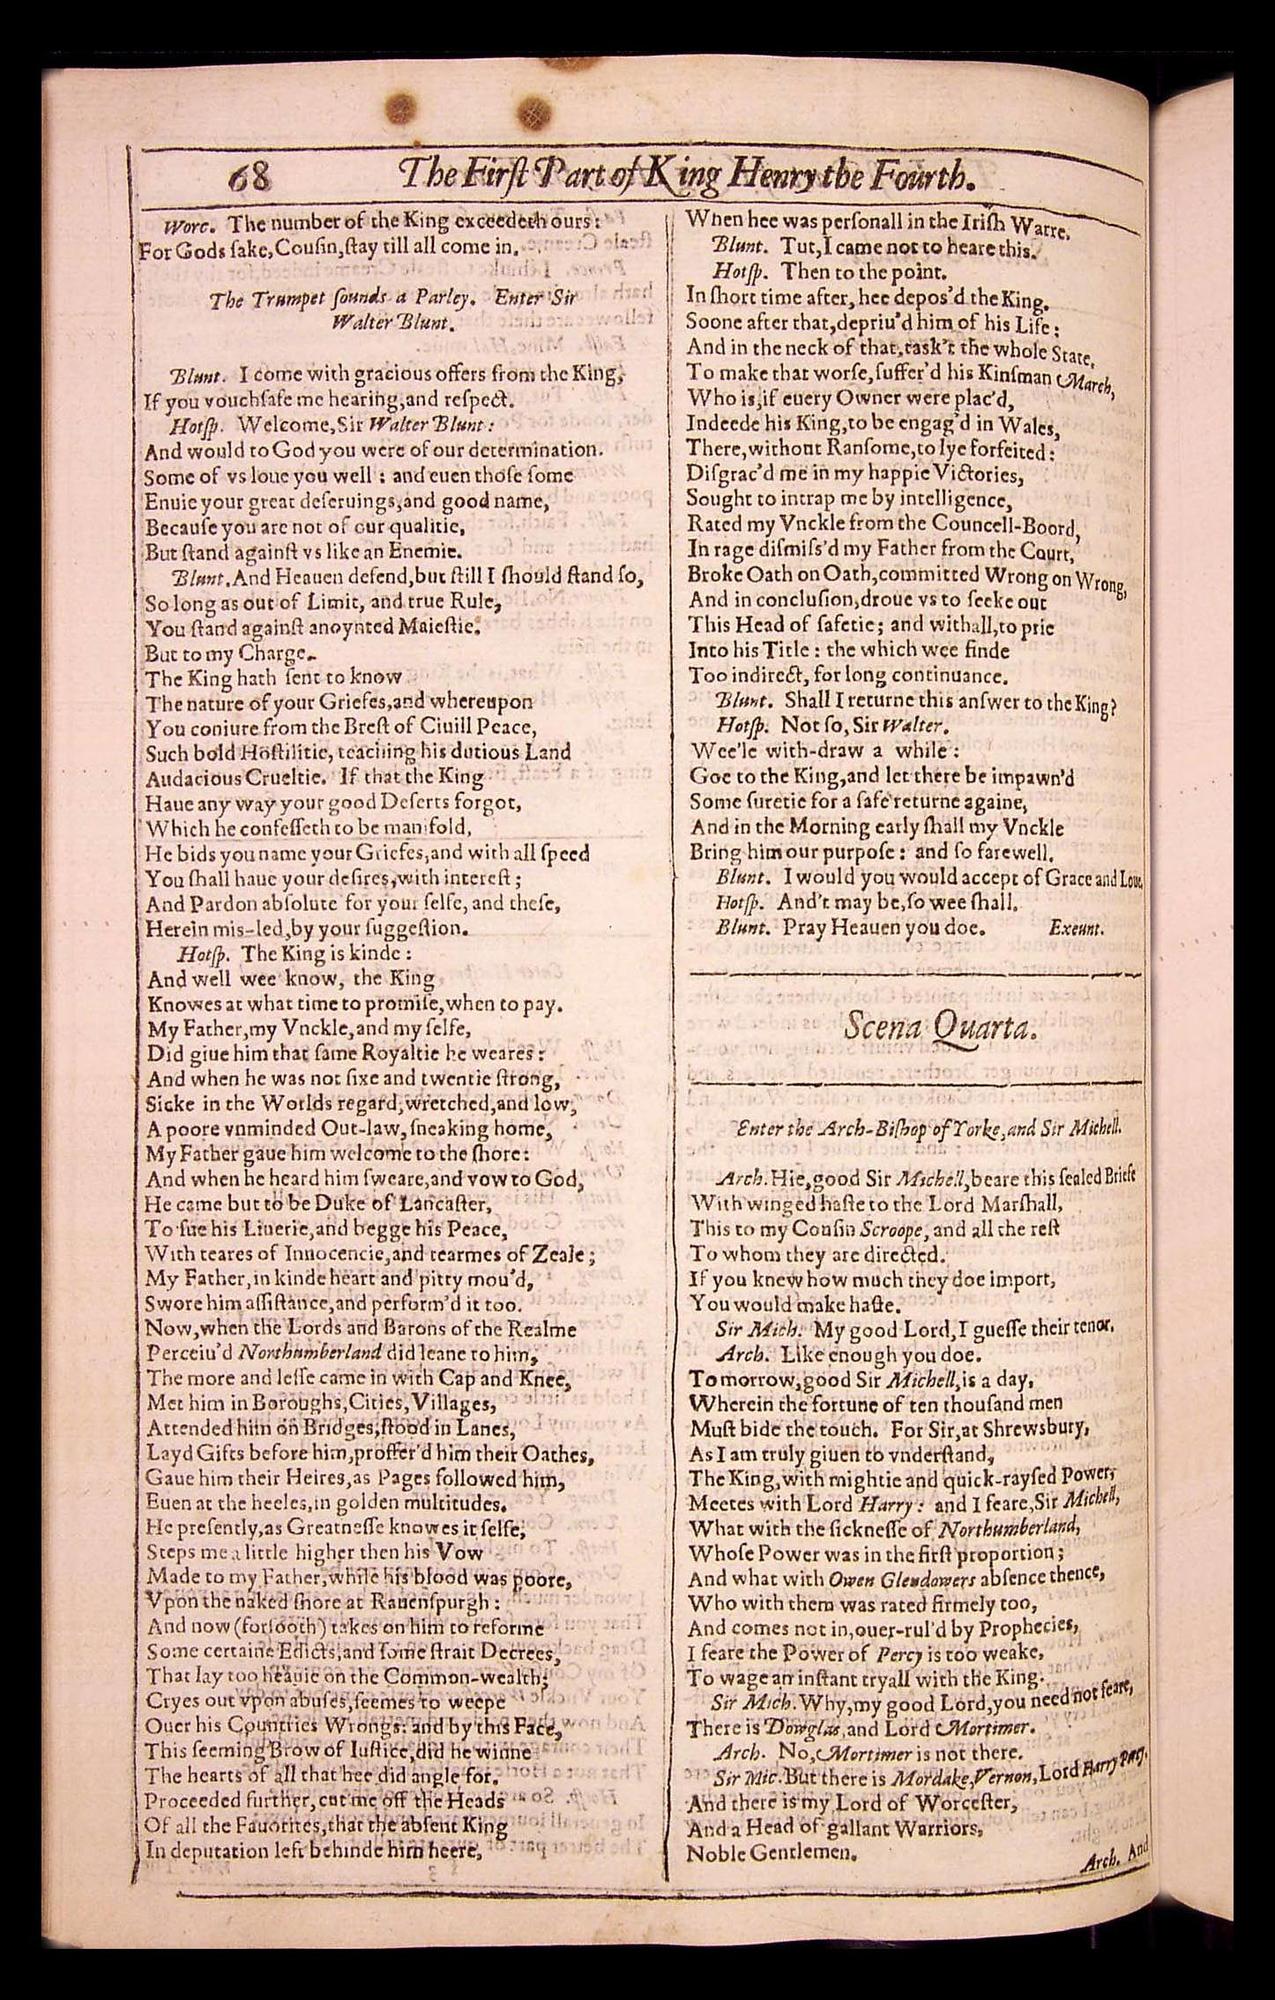 68 The First Part of King Henry the Fourth.
Worc. The number of the King exceedeth ours:
For Gods sake, Cousin, stay till all come in.
The Trumpet sounds a Parley. Enter Sir
Walter Blunt.
Blunt. I come with gracious offers from the King,
If you vouchsafe me hearing, and respect.
Hotsp. Welcome, Sir Walter Blunt:
And would to God you were of our determination.
Some of vs loue you well: and euen those some
Enuie your great deseruings, and good name,
Because you are not of our qualitie,
But stand against vs like an Enemie.
Blunt. And Heauen defend, but still I should stand so,
So long as out of Limit, and true Rule,
You stand against anoynted Maiestie.
But to my Charge.
The King hath sent to know
The nature of your Griefes, and whereupon
You coniure from the Brest of Ciuill Peace,
Such bold Hostilitie, teaching his dutious Land
Audacious Crueltie. If that the King
Haue any way your good Deserts forgot,
Which he confesseth to be manifold,
He bids you name your Griefes, and with all speed
You shall haue your desires, with interest;
And Pardon absolute for your selfe, and these,
Herein mis-led, by your suggestion.
Hotsp. The King is kinde:
And well wee know, the King
Knowes at what time to promise, when to pay.
My Father, my Vnckle, and my selfe,
Did giue him that same Royaltie he weares:
And when he was not sixe and twentie strong,
Sicke in the Worlds regard, wretched, and low,
A poore vnminded Out-law, sneaking home,
My Father gaue him welcome to the shore:
And when he heard him sweare, and vow to God,
He came but to be Duke of Lancaster,
To sue his Liuerie, and begge his Peace,
With teares of Innocencie, and tearmes of Zeale;
My Father, in kinde heart and pitty mou'd,
Swore him assistance, and perform'd it too.
Now, when the Lords and Barons of the Realme
Perceiu'd Northumberland did leane to him,
The more and lesse came in with Cap and Knee,
Met him in Boroughs, Cities, Villages,
Attended him on Bridges, stood in Lanes,
Layd Gifts before him, proffer'd him their Oathes,
Gaue him their Heires, as Pages followed him,
Euen at the heeles, in golden multitudes.
He presently, as Greatnesse knowes it selfe,
Steps me a little higher then his Vow
Made to my Father, while his blood was poore,
Vpon the naked shore at Rauenspurgh:
And now (forsooth) takes on him to reforme
Some certaine Edicts, and some strait Decrees,
That lay too heauie on the Common-wealth;
Cryes out vpon abuses, seemes to weepe
Ouer his Countries Wrongs: and by this Face,
This seeming Brow of Iustice, did he winne
The hearts of all that hee did angle for.
Proceeded further, cut me off the Heads
Of all the Fauorites, that the absent King
In deputation left behinde him heere,
When hee was personall in the Irish Warre.
Blunt. Tut, I came not to heare this.
Hotsp. Then to the point.
In short time after, hee depos'd the King.
Soone after that, depriu'd him of his Life:
And in the neck of that, task't the whole State.
To make that worse, suffer'd his Kinsman March,
Who is, if euery Owner were plac'd,
Indeede his King, to be engag'd in Wales,
There, without Ransome, to lye forfeited:
Disgrac'd me in my happie Victories,
Sought to intrap me by intelligence,
Rated my Vnckle from the Councell-Boord,
In rage dismiss'd my Father from the Court,
Broke Oath on Oath, committed Wrong on Wrong,
And in conclusion, droue vs to seeke out
This Head of safetie; and withall, to prie
Into his Title: the which wee finde
Too indirect, for long continuance.
Blunt. Shall I returne this answer to the King?
Hotsp. Not so, Sir Walter.
Wee'le with-draw a while:
Goe to the King, and let there be impawn'd
Some suretie for a safe returne againe,
And in the Morning early shall my Vnckle
Bring him our purpose: and so farewell.
Blunt. I would you would accept of Grace and Loue.
Hotsp. And't may be, so wee shall.
Blunt. Pray Heauen you doe. Exeunt.
Scena Quarta.
Enter the Arch-Bishop of Yorke, and Sir Michell.
Arch. Hie, good Sir Michell, beare this sealed Briefe
With winged haste to the Lord Marshall,
This to my Cousin Scroope, and all the rest
To whom they are directed.
If you knew how much they doe import,
You would make haste.
Sir Mich. My good Lord, I guesse their tenor.
Arch. Like enough you doe.
To morrow, good Sir Michell, is a day,
Wherein the fortune of ten thousand men
Must bide the touch. For Sir, at Shrewsbury,
As I am truly giuen to vnderstand,
The King, with mightie and quick-raysed Power,
Meetes with Lord Harry: and I feare, Sir Michell,
What with the sicknesse of Northumberland,
Whose Power was in the first proportion;
And what with Owen Glendowers absence thence,
Who with them was rated firmely too,
And comes not in, ouer-rul'd by Prophecies,
I feare the Power of Percy is too weake,
To wage an instant tryall with the King.
Sir Mich. Why, my good Lord, you need not feare,
There is Dowglas, and Lord Mortimer.
Arch. No, Mortimer is not there.
Sir Mic. But there is Mordake, Vernon, Lord Harry Percy.
And there is my Lord of Worcester,
And a Head of gallant Warriors,
Noble Gentlemen.
Arch. And